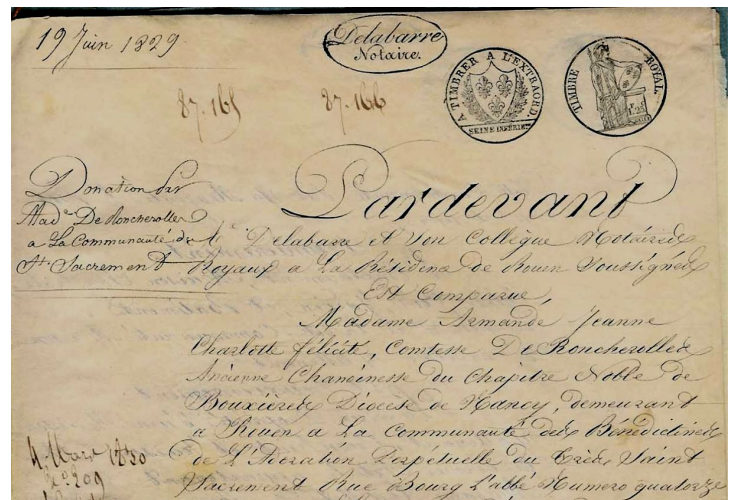 19 Juin 1829
Delabarre
Notaire.
A TIMBRER A L'EXTRAORD.
SEINE INFÉRIEre
TIMBRE ROYAL.
87.165
87.166
Donation par
Made De Roncherolles
a La Communauté du
St Sacrement
Pardevant
Me Delabarre et Son Collègue Notaires
Royaux a La Résidence de Rouen Soussignés
Est Comparue,
Madame Armande Jeanne
Charlotte félicité, Comtesse De Roncherolles
Ancienne Chanoinesse du Chapitre Noble de
Bouxières Diocèse de Nancy, demeurant
a Rouen a La Communauté des Bénédictines
de L'Adoration Perpétuelle du Très Saint
Sacrement Rue Bourg L'abbé Numero quatorze
4 Mars 1830
No 209